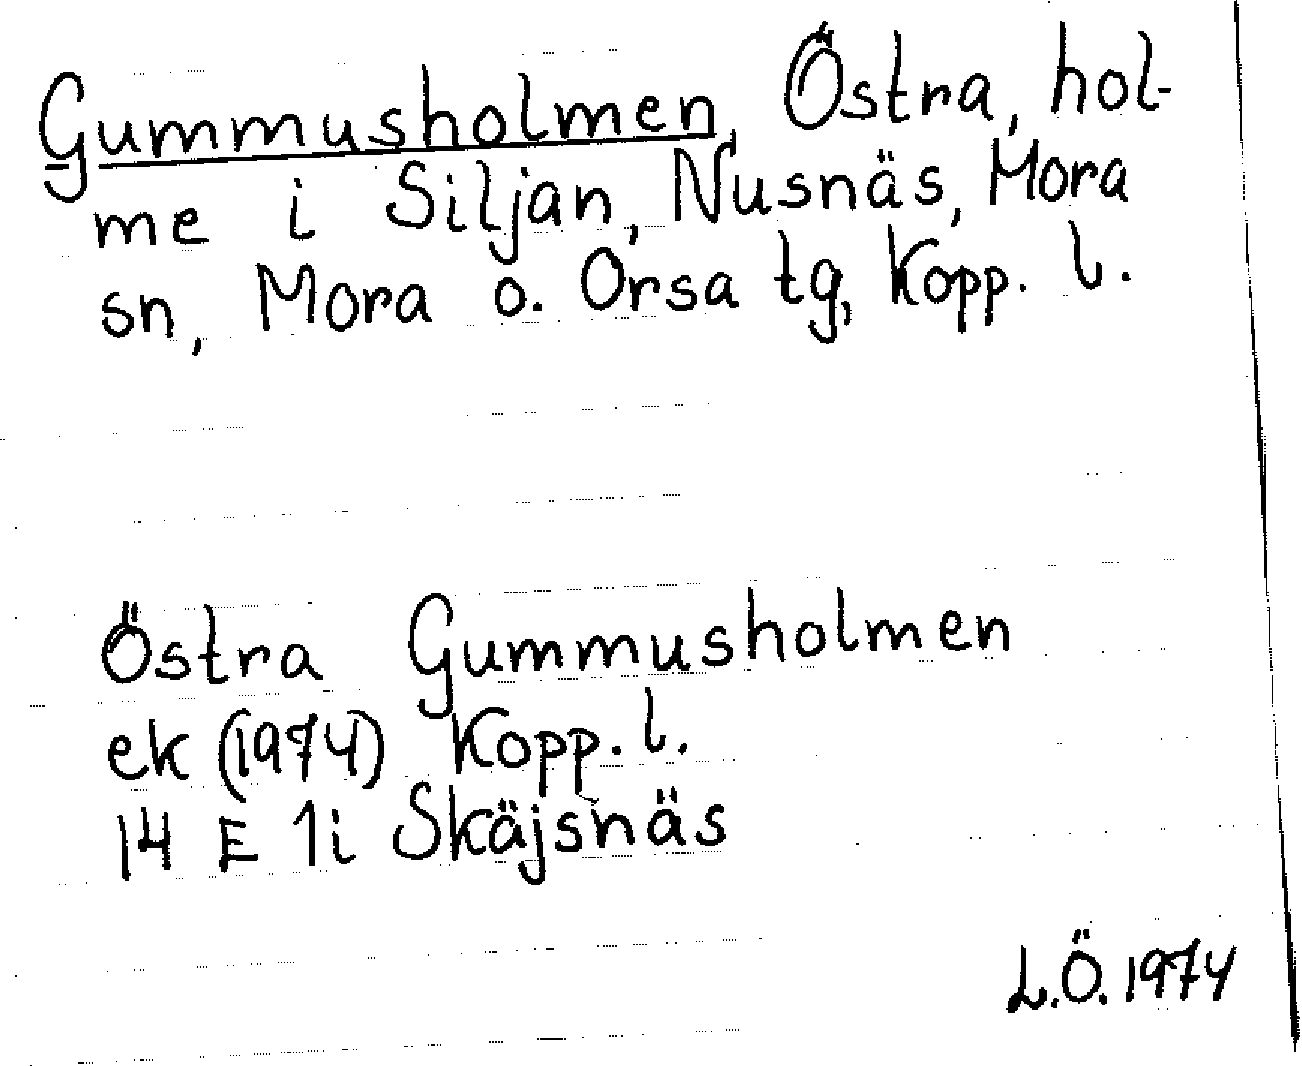 Gummusholmen, Östra, hol-
me i Siljan, Nusnäs, Mora
sn, Mora o. Orsa tg, Kopp. l.
Östra Gummusholmen
ek (1974) Kopp. l.
14 E 1i Skäjsnäs
L.Ö. 1974